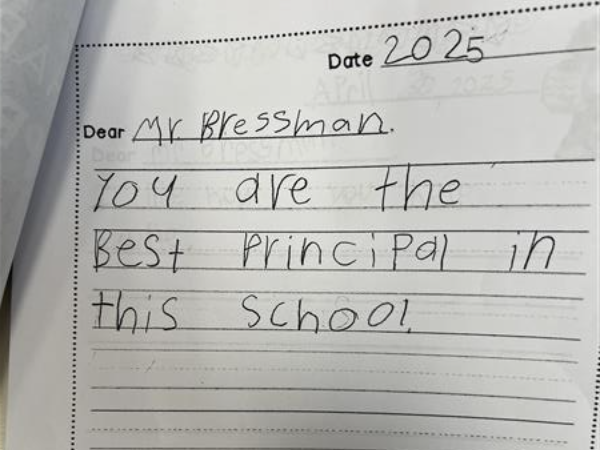 Date 2025
Dear Mr. Bressman.
You are the
Best Principal in
this school.